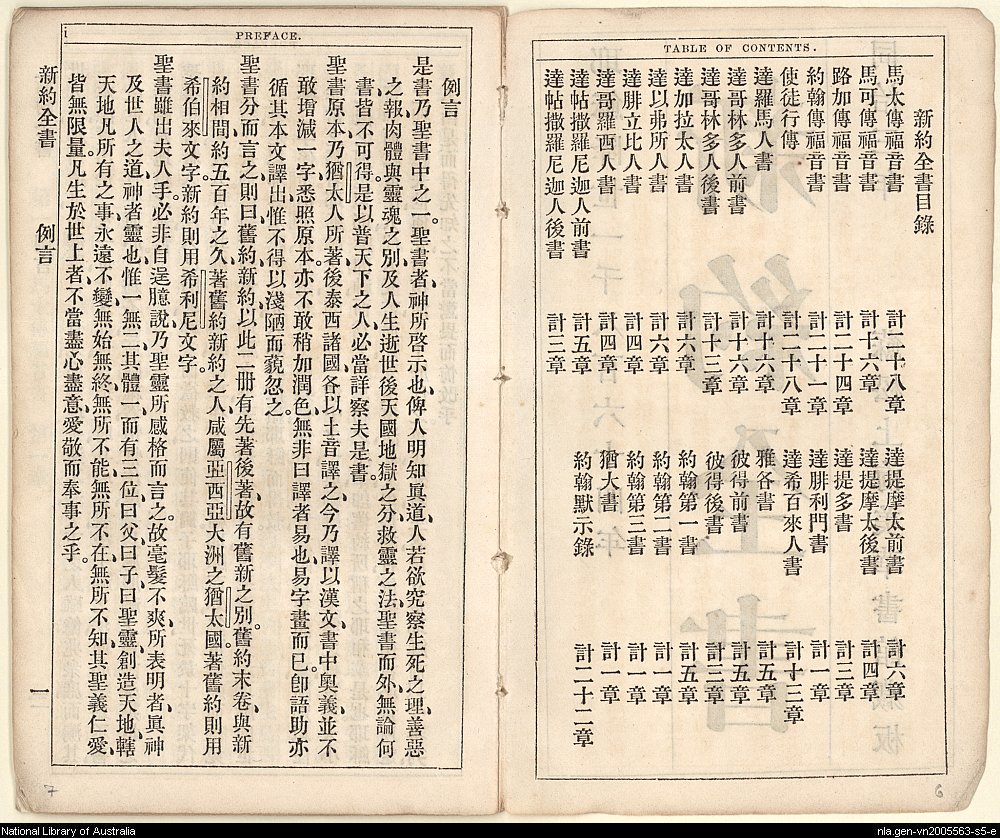 TABLE OF CONTENTS.
新約全書目錄
馬太傳福音書 計二十八章 達提摩太前書 計六章
馬可傳福音書 計十六章 達提摩太後書 計四章
路加傳福音書 計二十四章 達提多書 計三章
約翰傳福音書 計二十一章 達腓利門書 計一章
使徒行傳 計二十八章 達希百來人書 計十三章
達羅馬人書 計十六章 雅各書 計五章
達哥林多人前書 計十六章 彼得前書 計五章
達哥林多人後書 計十三章 彼得後書 計三章
達加拉太人書 計六章 約翰第一書 計五章
達以弗所人書 計六章 約翰第二書 計一章
達腓立比人書 計四章 約翰第三書 計一章
達哥羅西人書 計四章 猶大書 計一章
達帖撒羅尼迦人前書 計五章 約翰默示錄 計二十二章
達帖撒羅尼迦人後書 計三章
6
i
PREFACE.
例言
是書乃聖書中之一、聖書者、神所啓示也、俾人明知眞道、人若欲究察生死之理、善惡
之報、肉體與靈魂之別、及人生逝世後、天國地獄之分、救靈之法、聖書而外、無論何
書、皆不可得、是以普天下之人、必當詳察夫是書。
聖書原本、乃猶太人所著、後泰西諸國、各以土音譯之、今乃譯以漢文、書中奧義、並不
敢增減一字、悉照原本、亦不敢稍加潤色、無非曰譯者易也、易字畫而已、卽語助亦
循其本文譯出、惟不得以淺陋而藐忽之。
聖書分而言之、則曰舊約新約、以此二册有先著後著、故有舊新之別、舊約末卷、與新
約相間、約五百年之久、著舊約新約之人、咸屬亞西亞大洲之猶太國、著舊約則用
希伯來文字、新約則用希利尼文字。
聖書雖出夫人手、必非自逞臆說、乃聖靈所感格而言之、故毫髮不爽、所表明者、眞神
及世人之道、神者靈也、惟一無二、其體一而有三位、曰父、曰子、曰聖靈、創造天地、轄
天地凡所有之事、永遠不變、無始無終、無所不能、無所不在、無所不知、其聖義仁愛、
皆無限量、凡生於世上者、不當盡心盡意、愛敬而奉事之乎。
新約全書 例言 一
7
National Library of Australia
nla.gen-vn2005563-s5-e